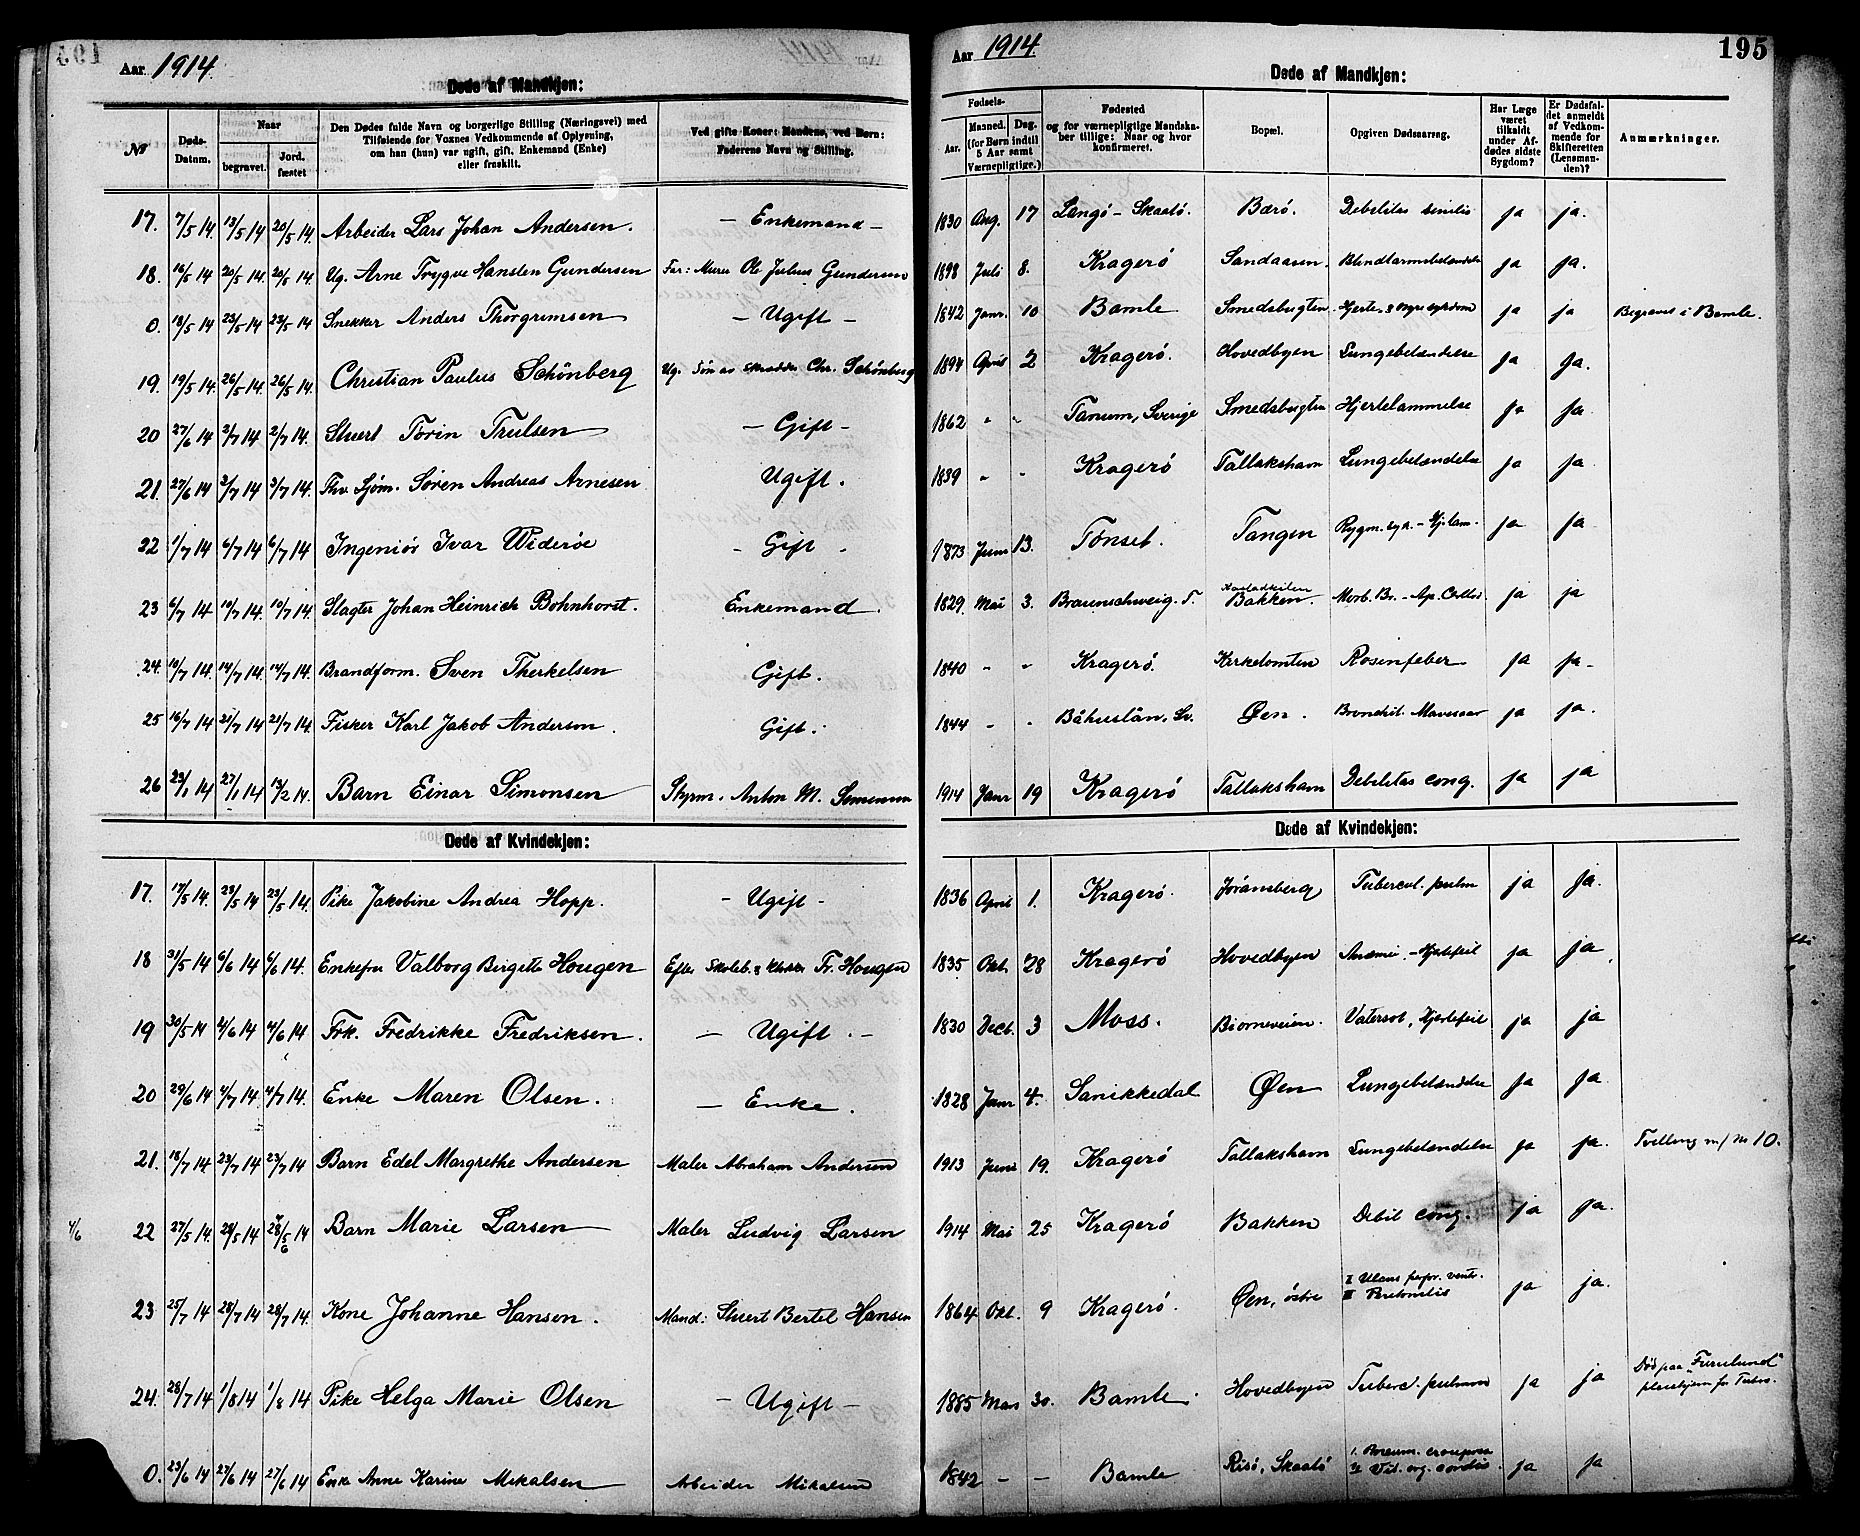 Aar 1914
Døde af Mandkjøn:
Nº
Døds-Datum.
Naar
begravet.
Jord. fæstet
Den Dødes fulde Navn og borgerlige Stilling (Næringsvei) med
Tilføiende for Voxnes Vedkommende af Oplysning,
om han (hun) var ugift, gift, Enkemand (Enke)
eller fraskilt.
Ved gifte Koner: Mandens, ved Børn:
Faderens Navn og Stilling.
17. 7/5 14 13/5 14 20/5 14. Arbeider Lars Johan Andersen. — Enkemand —
18. 16/5 14 20/5 14. 20/5 14. Ug. Arne Trygve Hansten Gundersen Far: Murer Ole Julius Gundersen
0. 18/5 14 23/5 14 23/5 14 Snekker Anders Thorgrimsen — Ugift —
19. 19/5 14. 26/5 14 26/5 14. Christian Paulus Schönberg Ug. Søn av Skrædder Chr. Schönberg
20 27/6 14 2/7 14 2/7 14. Stuert Torin Trulsen — Gift —
21. 27/6 14 3/7 14 3/7 14. Fhv. Sjøm. Søren Andreas Arnesen Ugift.
22 1/7 14 6/7 14 6/7 14. Ingeniør Ivar Widerøe - Gift -
23 6/7 14 10/7 14. 10/7 14. Slagter Johan Heinrich Bohnhorst. Enkemand.
24. 10/7 14. 14/7 14. 14/7 14. Brandform. Sven Therkelsen Gift.
25 16/7 14 21/7 14 21/7 14. Fisker Karl Jakob Anderson. Gift.
26 23/1 14 27/1 14 13/2 14. Barn Einar Simonsen Styrm. Anton M. Simonsen
Døde af Kvindekjøn:
17. 17/5 14. 23/5 14 23/5 14. Pike Jakobine Andrea Hopp. - Ugift -
18 31/5 14 6/6 14 6/6 14. Enkefru Valborg Birgitte Hougen Efter Skoleb. & Klokker Fr. Hougen
19 30/5 14 4/6 14 4/6 14 Frk. Fredrikke Fredriksen. — Ugift. —
20 29/6 14 4/7 14. 4/7 14. Enke Maren Olsen. — Enke.
21. 18/7 14 23/7 14 23/7 14 Barn Edel Margrethe Andersen Maler Abraham Andersen
4/6 22 27/5 14. 28/5 14 28/5 14 6 Barn Marie Larsen Maler Ludvig Larsen
23 25/7 14 28/7 14 28/7 14. Kone Johanne Hansen. Mand: Stuert Bertel Hansen
24. 28/7 14 1/8 14 1/8 14 Pike Helga Marie Olsen - Ugift -
0. 23/6 14 27/6 14 27/6 14 Enke Anne Karine Mikalsen Arbeider Mikalsen
Aar 1914
195
Døde af Mandkjøn:
Fødsels-
Aar.
Maaned. Dag.
(for Børn indtil
5 Aar samt
Værnepligtige.)
Fødested
og for værnepligtige Mandska-
ber tillige: Naar og hvor
konfirmeret.
Bopæl.
Opgiven Dødsaarsag.
Har Læge
været
tilkaldt
under Af-
dødes sidste
Sygdom?
Er Dødsfal-
det anmeldt
af Vedkom-
mende for
Skifteretten
(Lensman-
den)?
Anmærkninger.
1830 Aug. 17 Langø - Skaatø. Bærø. Debilitas senilis ja ja.
1898 Juli 8. Kragerø Sandaasen. Blindtarmsbetændelse ja ja.
1842 Janr. 10 Bamle Smedsbugten Hjerte- & Nyresykdom ja ja Begravet i Bamle.
1894 April 2 Kragerø. Hovedbyen Lungebetændelse ja ja.
1862 " " Tanum, Sverige Smedsbugten Hjertelammelse ja ja
1839 " - Kragerø Tallakshavn Lungebetændelse ja ja
1873 Juni 13. Tønset. Tangen Rygm. syk. - Hjlam. ja ja
1829. Mai 3. Braunschweig. T. Bakken. Morb. Br. - Ap. ja ja
1840 - - Kragerø. Kirketomten Rosenfeber ja ja
1844 - - Båhuslän, Sv. Øen. Bronchit. Mavesaar ja ja.
1914 Janr 19 Kragerø Tallakshavn Debilitas cong. ja ja
Døde af Kvindekjøn:
1836 April 1. Kragerø. Jøransberg Tubercul. pulm ja ja.
1835 Okt. 28 Kragerø Hovedbyen Anæmi. - Hjertefeil ja ja.
1830 Decb. 3 Moss. Biørneveien. Vatersot, Hjertefeil ja ja
1828 Janr 4. Sanikkedal Øen Lungebetændelse ja ja
1913 Juni 19. Kragerø Tallakshavn Lungebetændelse ja ja. Tvilling m/ Nr 10.
1914 Mai 25 Kragerø Bakken Debil cong. ja ja.
1864 Okt. 9 Kragerø. Øen, østre I Ulcus perfor. ventr. II Peritonitis ja ja.
1885 Mars 30. Bamle. Hovedbyen Tuberc. pulmon ja ja Død paa "Furulund" pleiehjem for Tuberc.
1842 - - Bamle Risø, Skaatø 1. Pneum. crouposa 2 Vit. org. cordis. ja ja